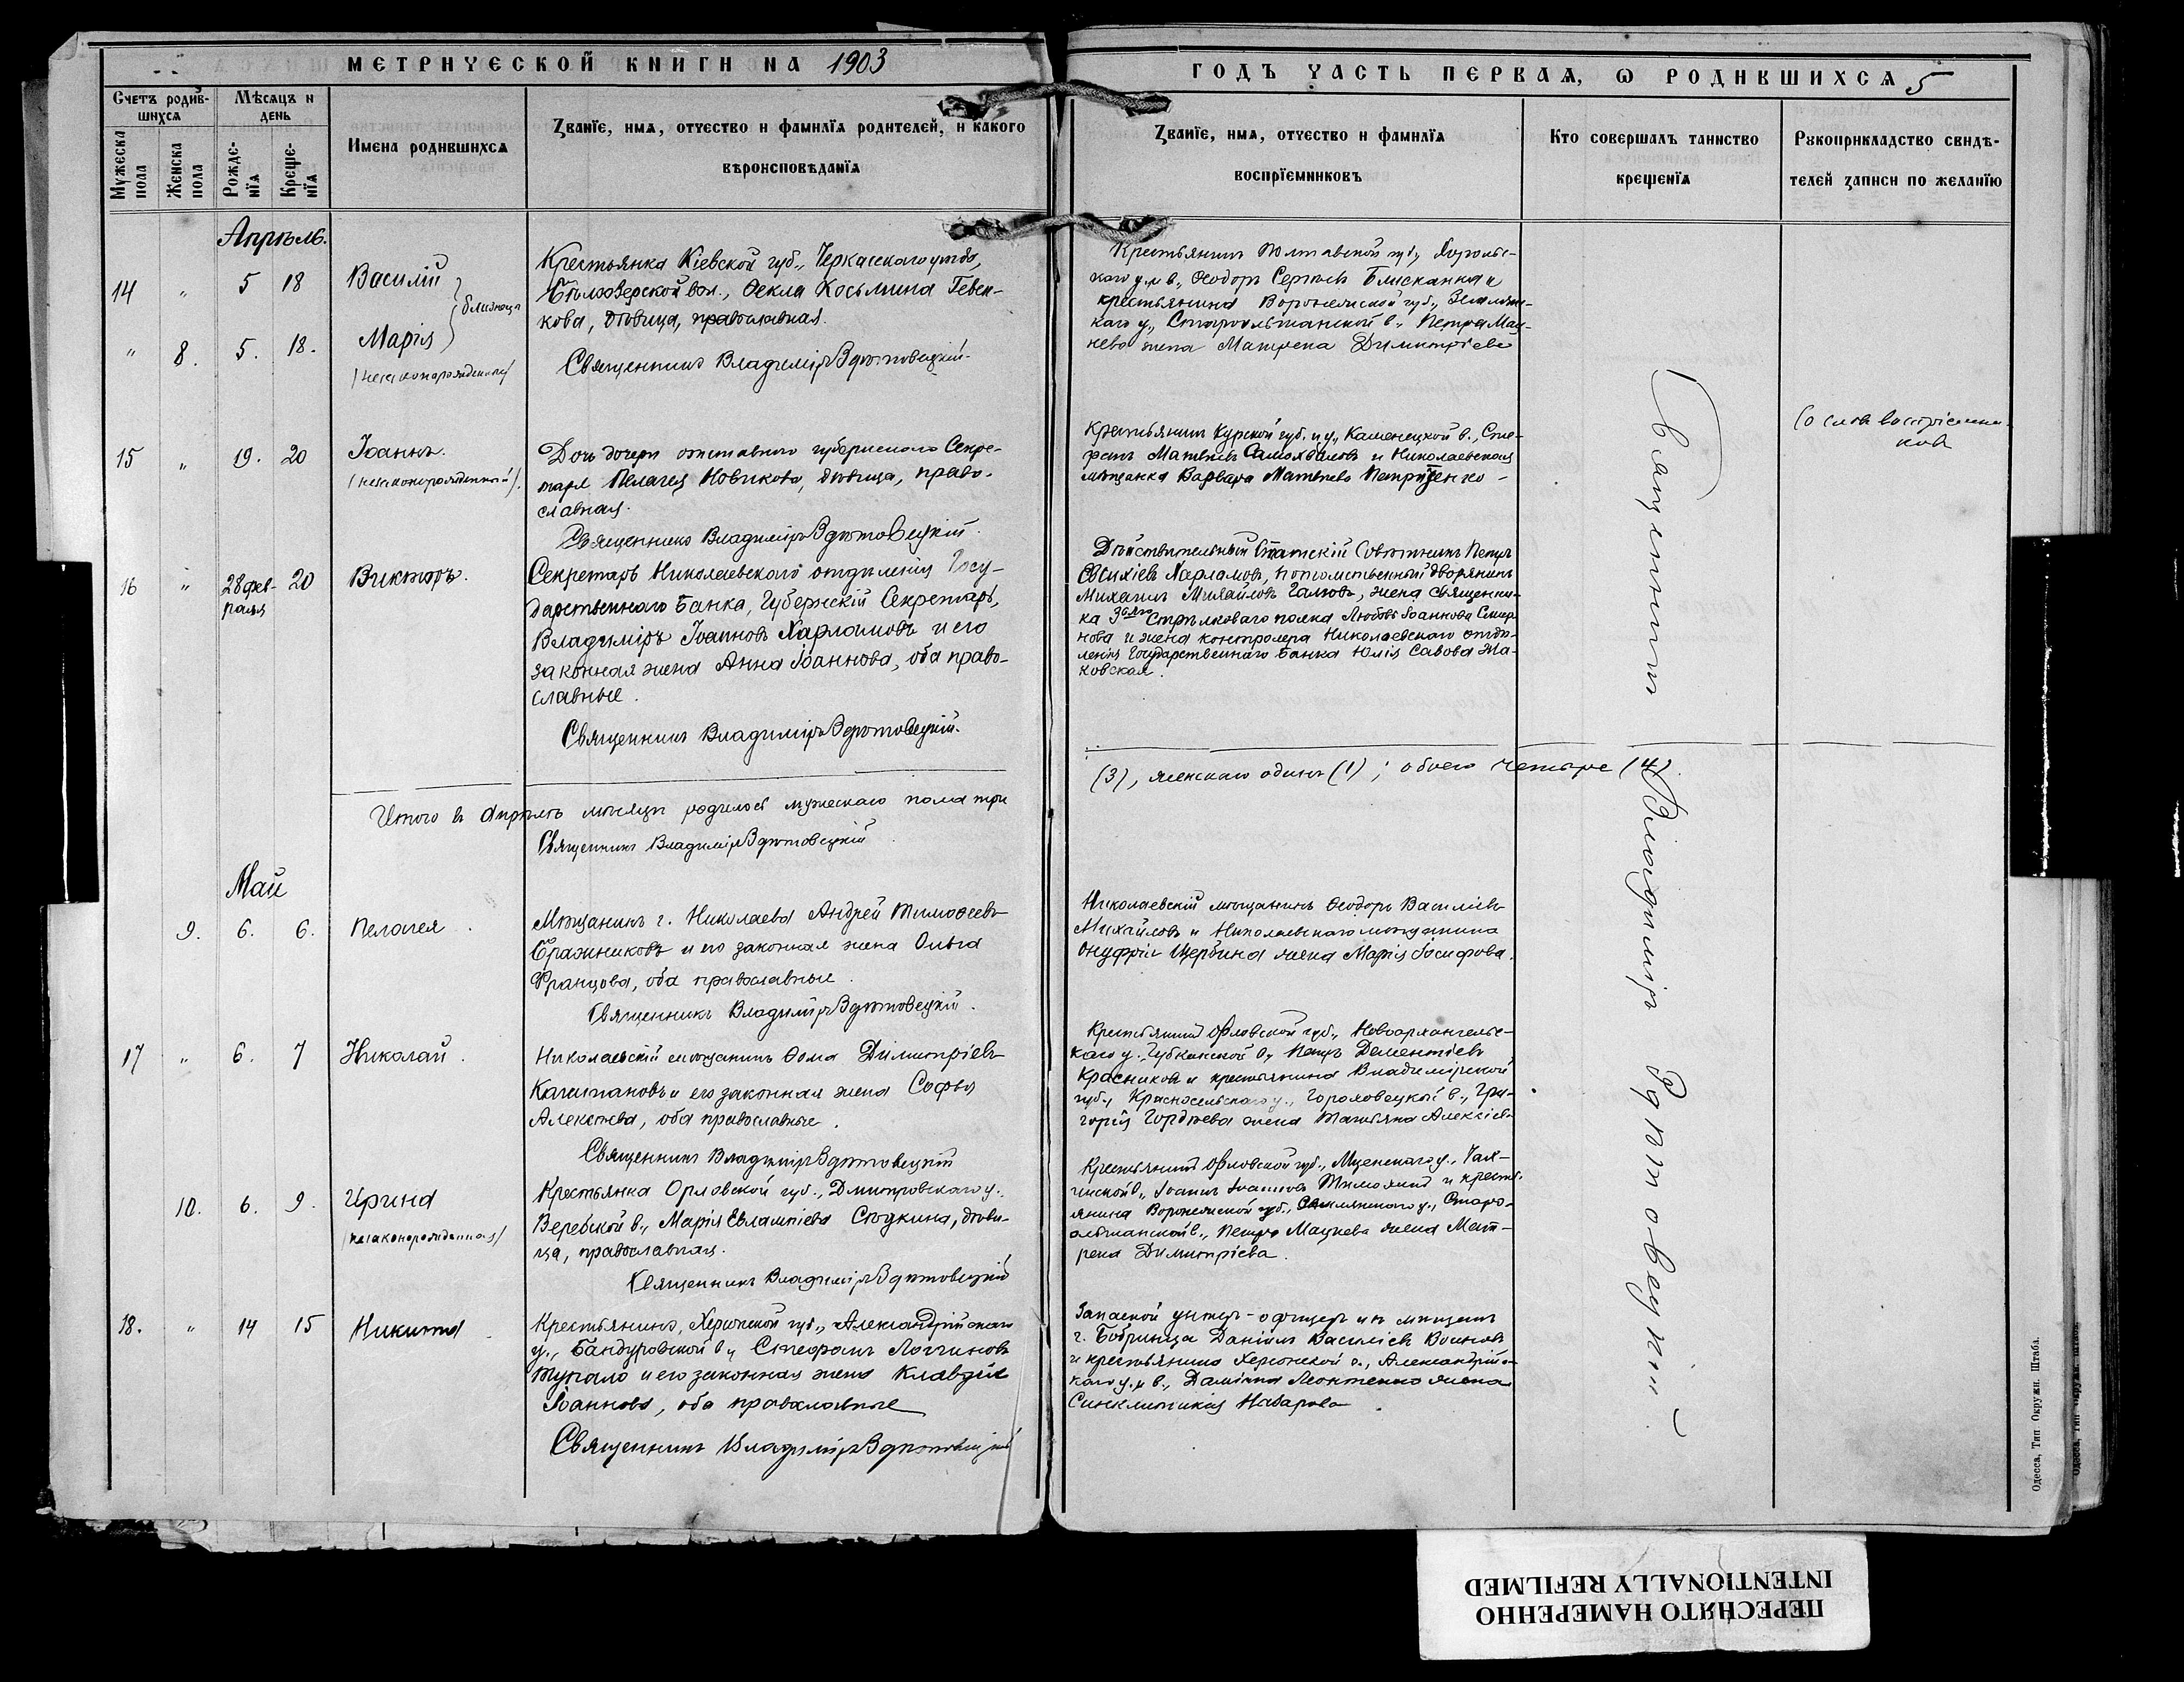 МЕТРИЧЕСКОЙ КНИГИ НА 1903
Счетъ родив-
шихся
Мѣсяцъ и
день
Мужеска
пола
Женска
пола
Рожде-
нія
Креще-
нія
Имена родившихся
Званіе, имя, отчество и фамилія родителей, и какого
вѣроисповѣданія
Апрѣль.
14 " 5 18 Василій
" 8. 5. 18. Марія
близнецы
(незаконорожденные)
Крестьянка Кіевской губ., Черкасскаго уѣзда,
Бѣлозерской вол., Ѳекла Косьмина
кова, дѣвица, православная.
Священникъ Владиміръ
15 " 19. 20 Іоаннъ.
(незаконорожденный).
Дочь отставного губернскаго Секре-
таря Пелагея Новикова, дѣвица, право-
славная.
Священникъ Владиміръ
16 " 28 фев-
раля 20 Викторъ.
Секретарь Николаевскаго отдѣленія Госу-
дарственнаго Банка, Губернскій Секретарь,
Владиміръ Іоанновъ Харламовъ и его
законная жена Анна Іоаннова, оба право-
славные.
Священникъ Владиміръ
Итого въ Апрѣлѣ мѣсяцѣ родилось мужескаго пола три
Священникъ Владиміръ
Май
9. 6. 6. Пелагея.
Мѣщанинъ г. Николаева Андрей Тимоѳеевъ
Бражниковъ и его законная жена Ольга
Францова, оба православные.
Священникъ Владиміръ
17 " 6. 7 Николай.
Николаевскій мѣщанинъ Ѳома Димитріевъ
и его законная жена Софья
Алексѣева, оба православные.
Священникъ Владиміръ
10. 6. 9. Ирина
(незаконорожденная)
Крестьянка Орловской губ., Дмитровскаго у.,
Веребской в., Марія Евлампіева Сѣдкина, дѣви-
ца, православная.
Священникъ Владиміръ
18. " 14 15 Никита
Крестьянинъ, Херсонской губ., Александрійскаго
у., Бандуровской в., Стефанъ Логгиновъ
Тупало и его законная жена Клавдія
Іоаннова, оба православные
Священникъ Владиміръ
ГОДЪ ЧАСТЬ ПЕРВАЯ, Ѡ РОДИВШИХСЯ 5
Званіе, имя, отчество и фамилія
воспріемниковъ
Кто совершалъ таинство
крещенія
Рукоприкладство свидѣ-
телей записи по желанію
Крестьянинъ Полтавской губ., Хороль-
каго у. и в., Ѳеодоръ Сергѣевъ и
крестьянина Воронежской губ.,
каго у., Староольшанской в., Петра Мац-
нева жена Матрена Димитріева
Крестьянинъ Курской губ. и у., Каменецкой в., Сте-
фанъ Матвѣевъ и Николаевская
мѣщанка Варвара Матвѣева
Со словъ воспріемни-
ковъ
Дѣйствительный Статскій Совѣтникъ Петръ
Харламовъ, потомственный дворянинъ
Михаилъ Михайловъ жена священни-
ка Стрѣлковаго полка Любовь Іоаннова Смир-
нова и жена контролера Николаевскаго отдѣ-
ленія Государственнаго Банка Юлія Савова Жа-
ковская.
(3), женскаго одинъ (1); обоего четыре (4).
Николаевскій мѣщанинъ Ѳеодоръ Василіевъ
Михайловъ и Николаевскаго мѣщанина
Онуфрія Щербина жена Марія Іосифова.
Крестьянинъ Орловской губ., Новоархангельс-
каго у., Губкинской в., Петръ Дементіевъ
Красниковъ и крестьянина Владимірской
губ., Красносельскаго у., Гороховецкой в., Гри-
горія Гордѣева жена Татьяна Алексіева
Крестьянинъ Орловской губ., Мценскаго у.,
Іоаннъ Іоанновъ Тимохинъ и кресть-
янина Воронежской губ., у., Старо-
ольшанской в., Петра Мацнева жена Мат-
рена Димитріева.
Запасной унтеръ-офицеръ изъ мѣщанъ
г. Бобринца Даніилъ Василіевъ Воиновъ
и крестьянина Херсонской г., Александрійс-
каго у. и в., Даміана Леонтенко жена
Синклитикія Назарова.
Священникъ Владиміръ
Одесса, Тип. Окружн. Штаба.
ПЕРЕСНЯТО НАМЕРЕННО
INTENTIONALLY REFILMED